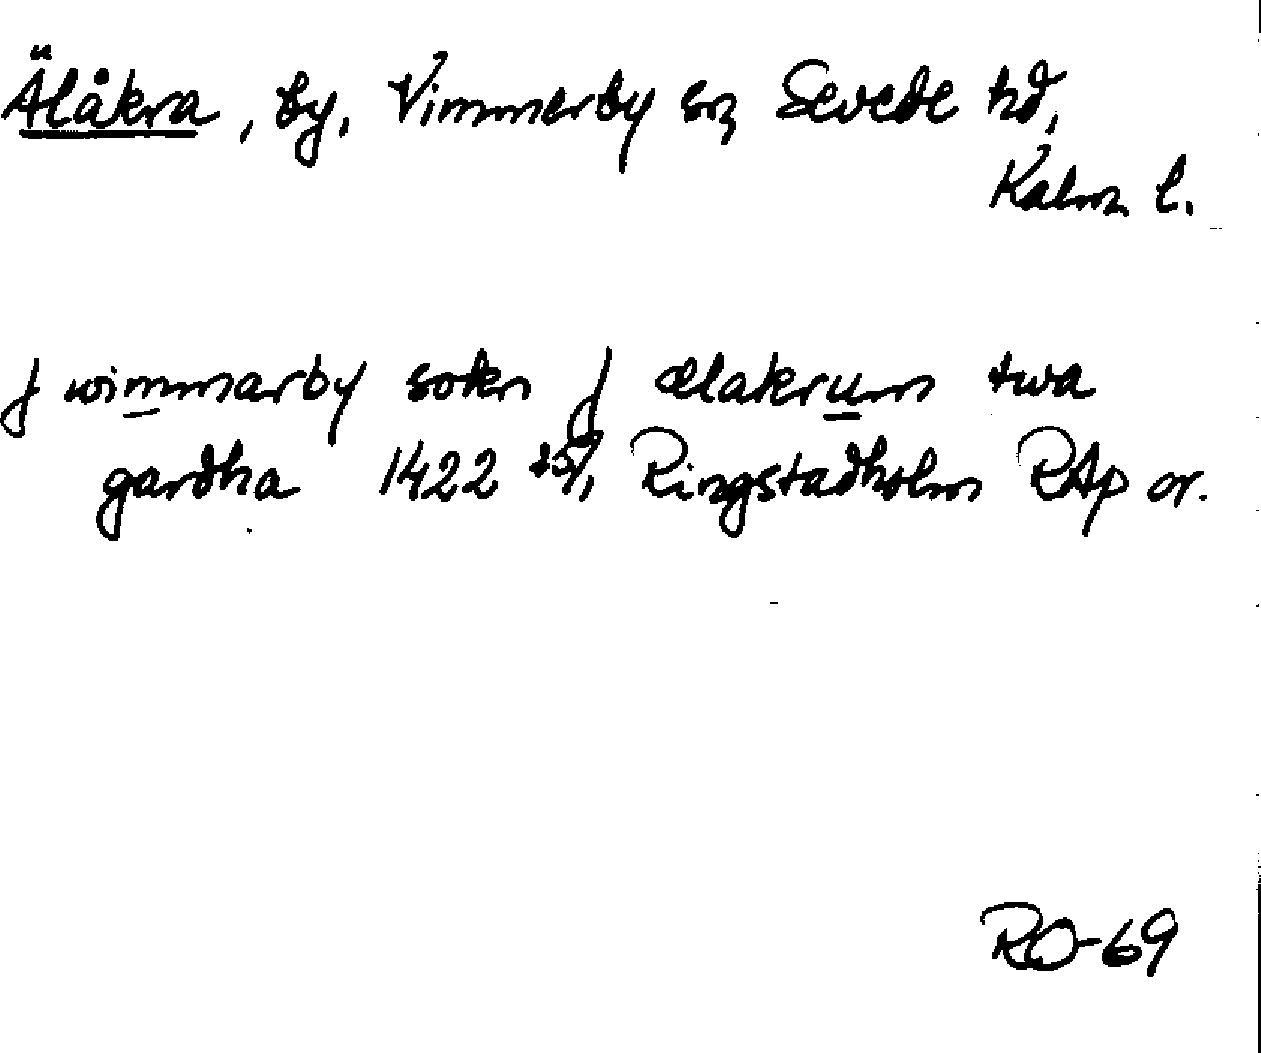 Älåkra, by, Vimmerby sn, Sevede hd,
Kalm. l.
J wimmarby sokn J ælakrum twa
gardha 1422 25/1 Ringstadholm RAp or.
RO-69